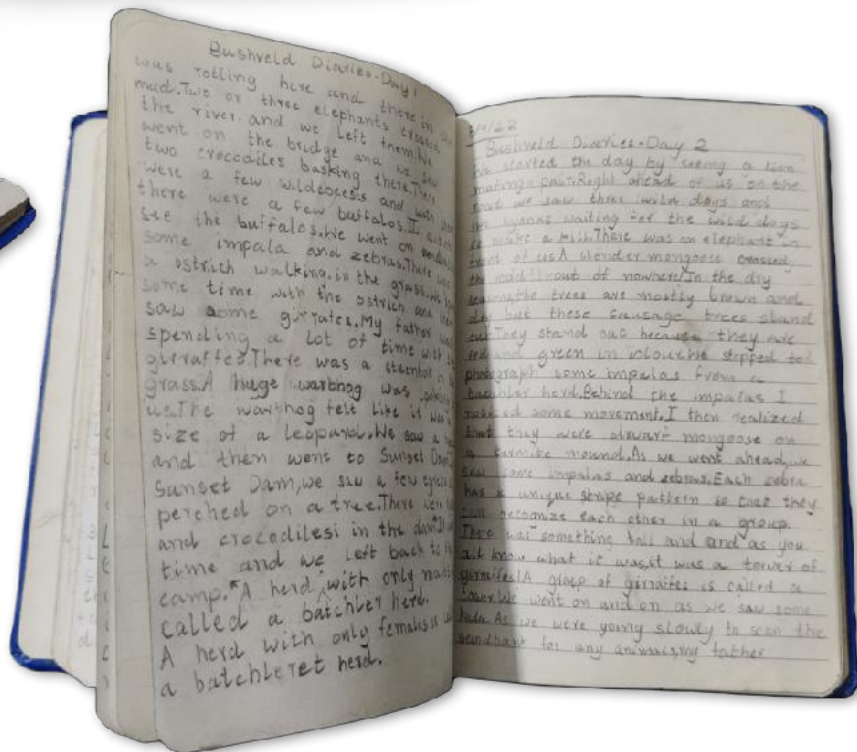 Bushveld Diaries-Day 1
was rolling here and there in
mud.Two or three elephants crossed
the river and we left them.We
went on the bridge and we saw
two crocodiles basking there.There
were a few wildebeests and with
there were a few buffalos.I didn't
see the buffalos.We went on and
some impala and zebras.There was
a ostrich walking.in the grass.We
some time with the ostrich and then
saw some girrafes.My father was
spending a lot of time with
girraffes.There was a steenbok in
grass.A huge warthog was looking
us.The warthog felt like it was
size of a leopard.We saw a
and then went to Sunset Dam.
Sunset Dam,we saw a few
perched on a tree.There were
and crocodiles in the dam.It
time and we left back to the
camp.*A herd with only males
called a batchler herd.
A herd with only females is
a batchleret herd.
Bushveld Diaries-Day 2
We started the day by seeing a lion
mating pair.Right ahead of us on the
road we saw three wild dogs and
hyenas waiting for the wild dogs
to make a kill.There was an elephant in
front of us.A slender mongoose crossed
the road out of nowhere!In the dry
season,the trees are mostly brown and
dry but these sausage trees stand
out.They stand out because they are
red and green in colour.We stopped to
photograph some impalas from a
batchler herd.Behind the impalas I
noticed some movement.I then realized
that they were dwarf mongoose on
a termite mound.As we went ahead,we
saw some impalas and zebras.Each zebra
has a unique stripe pattern so that they
can recognize each other in a group.
There was something tall and and as you
all know what it was,it was a tower of
giraffes!A group of girraffes is called a
tower.We went on and on as we saw some
As we were going slowly to scan the
for any animals,my father